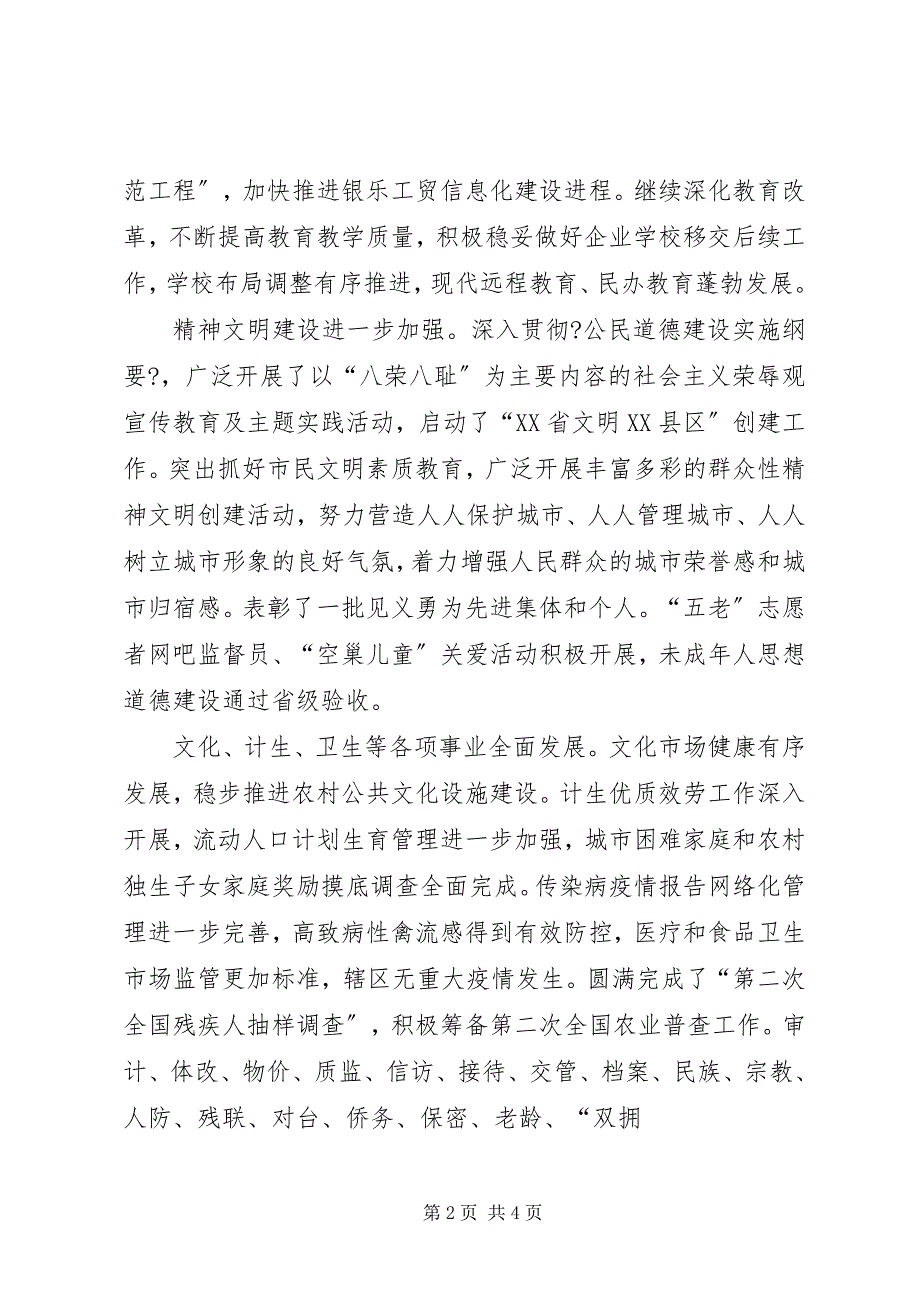 范工程〞，加快推进银乐工贸信息化建设进程。继续深化教育改
革，不断提高教育教学质量，积极稳妥做好企业学校移交后续工
作，学校布局调整有序推进，现代远程教育、民办教育蓬勃发展。
精神文明建设进一步加强。深入贯彻?公民道德建设实施纲
要?，广泛开展了以“八荣八耻〞为主要内容的社会主义荣辱观
宣传教育及主题实践活动，启动了“XX 省文明 XX 县区〞创建工
作。突出抓好市民文明素质教育，广泛开展丰富多彩的群众性精
神文明创建活动，努力营造人人保护城市、人人管理城市、人人
树立城市形象的良好气氛，着力增强人民群众的城市荣誉感和城
市归宿感。表彰了一批见义勇为先进集体和个人。“五老〞志愿
者网吧监督员、“空巢儿童〞关爱活动积极开展，未成年人思想
道德建设通过省级验收。
文化、计生、卫生等各项事业全面发展。文化市场健康有序
发展，稳步推进农村公共文化设施建设。计生优质效劳工作深入
开展，流动人口计划生育管理进一步加强，城市困难家庭和农村
独生子女家庭奖励摸底调查全面完成。传染病疫情报告网络化管
理进一步完善，高致病性禽流感得到有效防控，医疗和食品卫生
市场监管更加标准，辖区无重大疫情发生。圆满完成了“第二次
全国残疾人抽样调查〞，积极筹备第二次全国农业普查工作。审
计、体改、物价、质监、信访、接待、交管、档案、民族、宗教、
人防、残联、对台、侨务、保密、老龄、“双拥
第 2 页 共 4 页